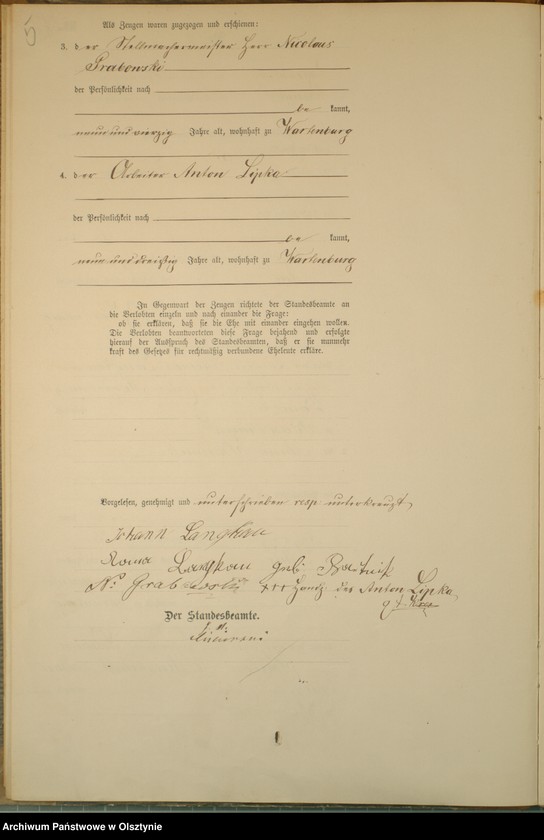 5
Als Zeugen waren zugezogen und erschienen:
3. der Stellmachermeister Herr Nicolaus
Grabowski
der Persönlichkeit nach
be kannt,
neun und vierzig Jahre alt, wohnhaft zu Wartenburg
4. der Arbeiter Anton Lipka
der Persönlichkeit nach
be kannt,
neun und dreißig Jahre alt, wohnhaft zu Wartenburg
In Gegenwart der Zeugen richtete der Standesbeamte an
die Verlobten einzeln und nach einander die Frage:
ob sie erklären, daß sie die Ehe mit einander eingehen wollen.
Die Verlobten beantworteten diese Frage bejahend und erfolgte
hierauf der Ausspruch des Standesbeamten, daß er sie nunmehr
kraft des Gesetzes für rechtmäßig verbundene Eheleute erkläre.
Vorgelesen, genehmigt und unterschrieben resp unterkreuzt,
Johann Langkau
Langkau geb.
N. Grabowski +++ Handz des Anton Lipka
Der Standesbeamte.
Archiwum Państwowe w Olsztynie